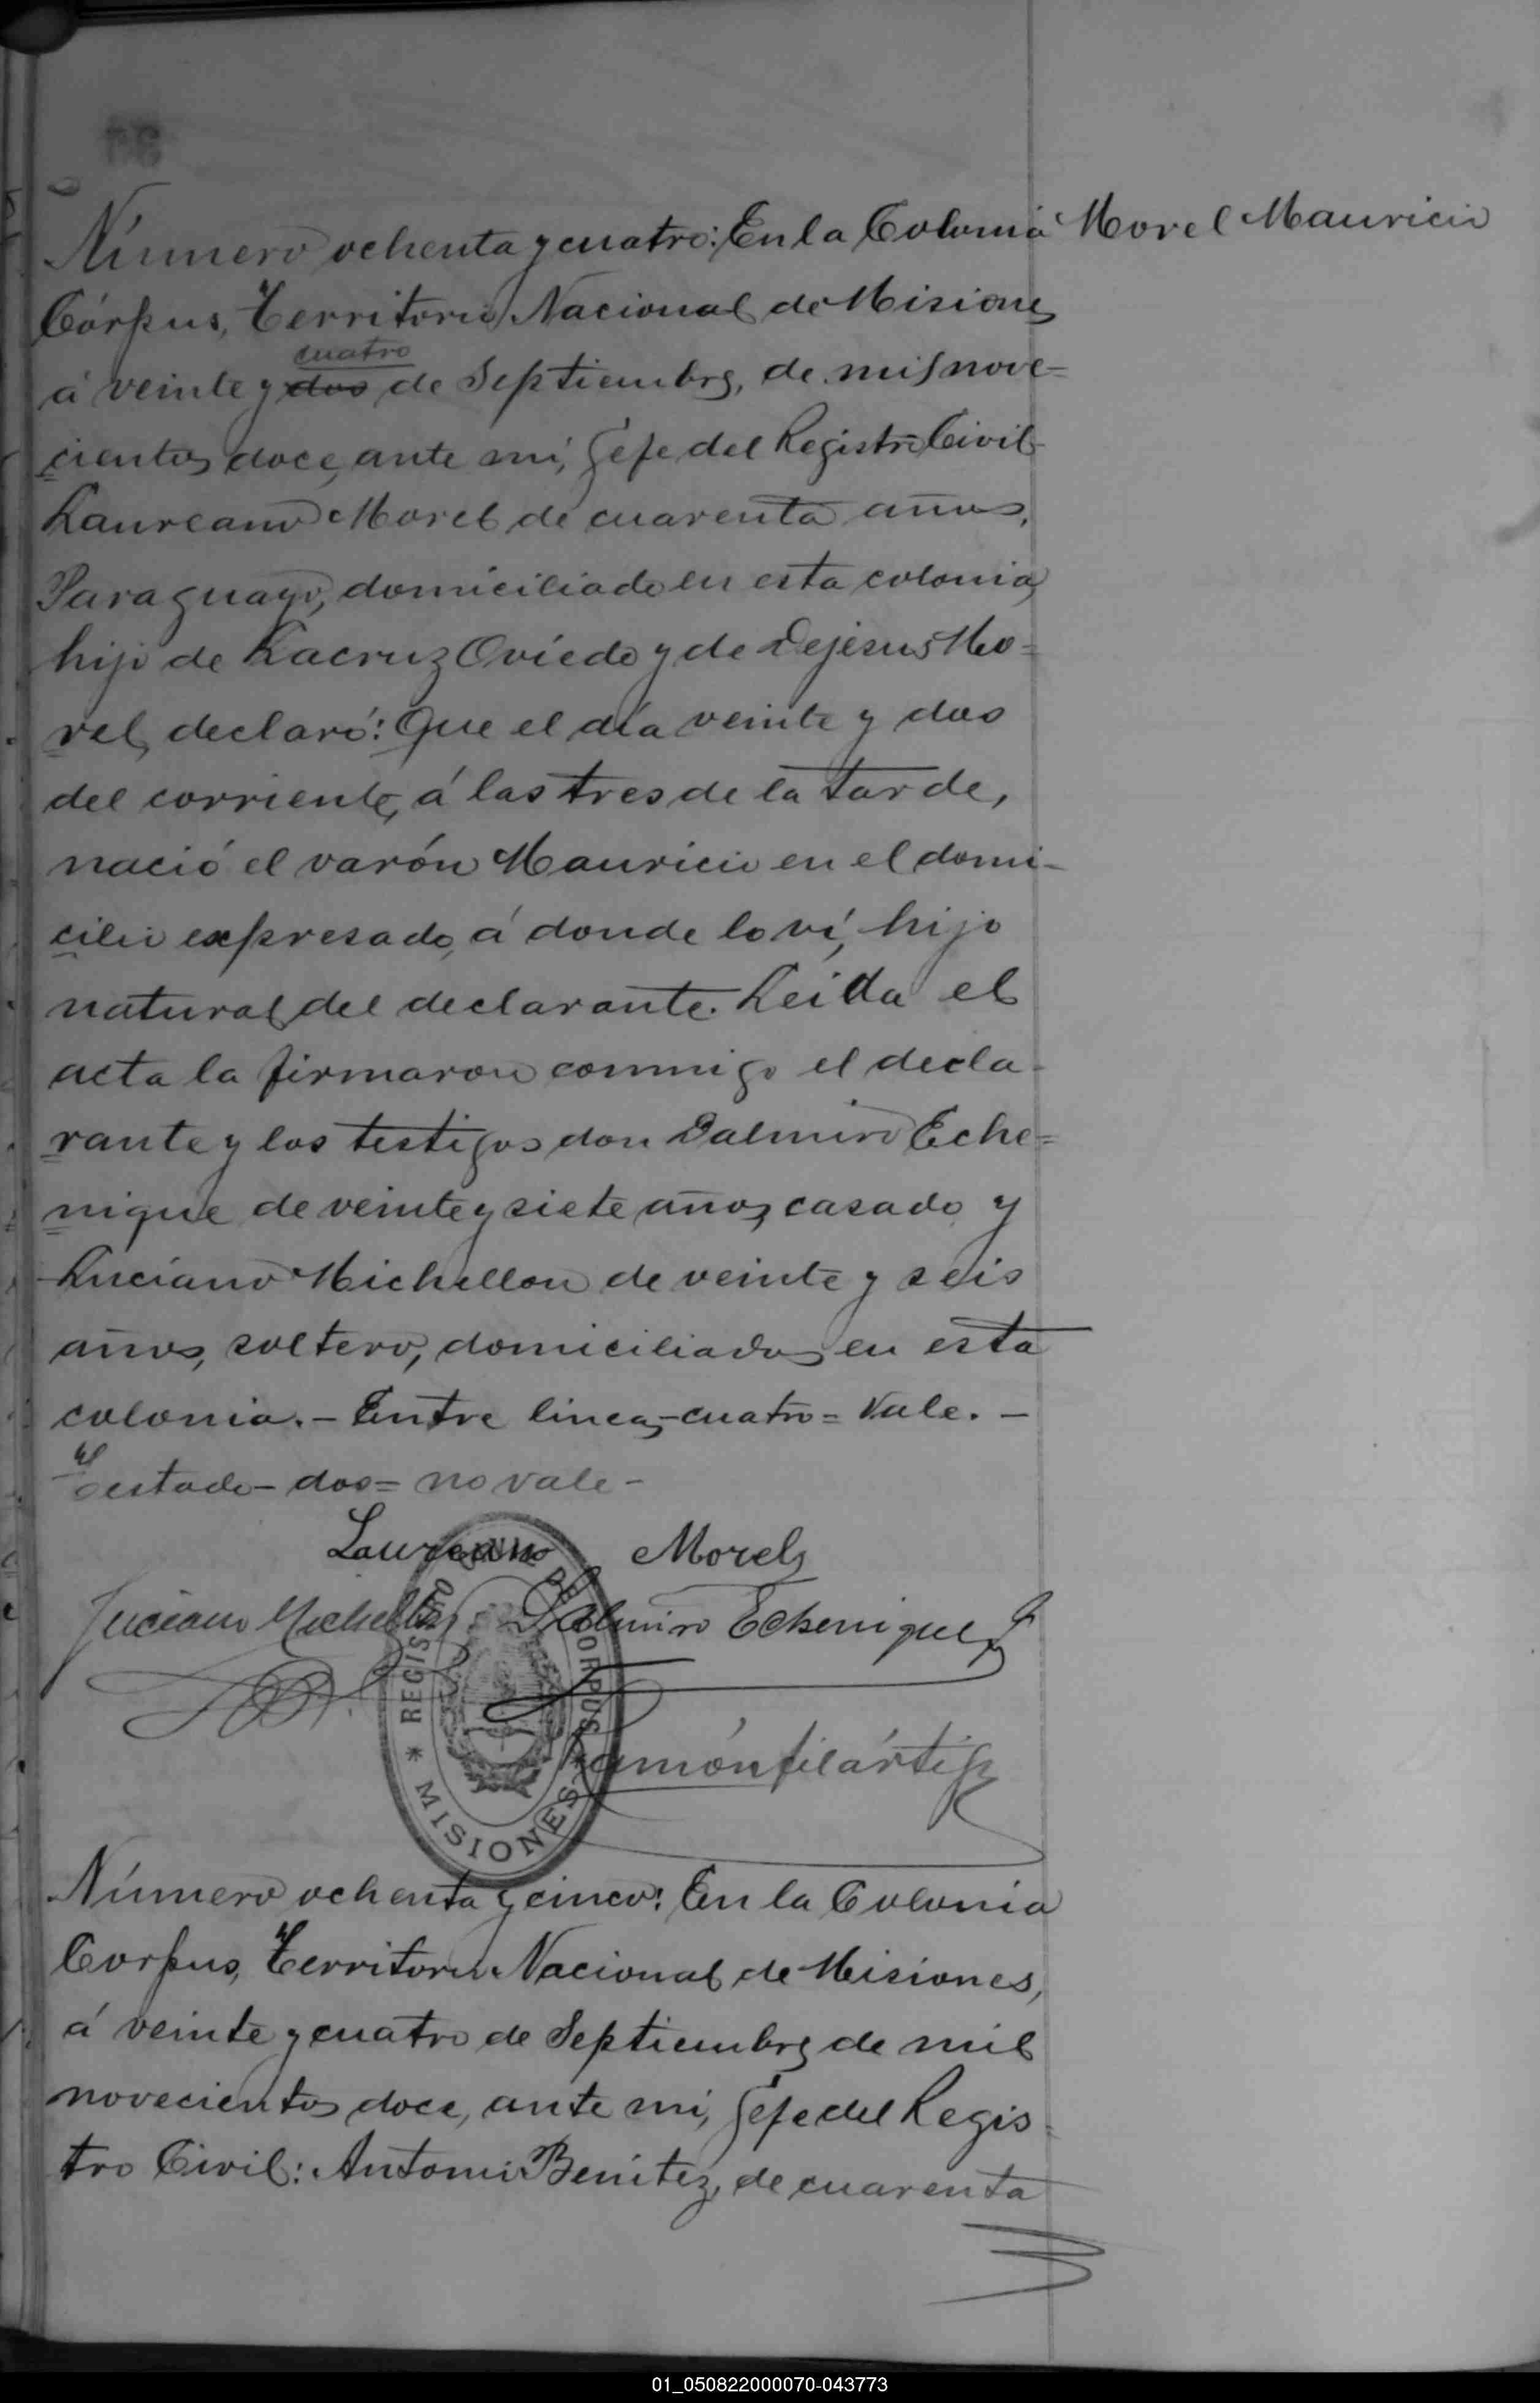 Número ochenta y cuatro: En la Colonia
Morel Mauricio
Córpus, Territorio Nacional de Misiones
cuatro
á veinte y dos de Septiembre, de mil nove=
cientos doce, ante mi, Gefe del Registro Civil
Laureano Morel de cuarenta años,
Paraguayo, domiciliado en esta colonia,
hijo de Lacruz Oviedo y de Dejesus Mo=
rel, declaró: Que el día veinte y dos
del corriente, á las tres de la tarde,
nació el varón Mauricio en el domi-
cilio expresado, á donde lo ví, hijo
natural del declarante. Leida el
acta la firmaron conmigo el decla-
rante y los testigos don Dalmiro Eche=
nique de veinte y siete años, casado y
Luciano Michellon de veinte y seis
años, soltero, domiciliados en esta
colonia. - Entre lineas - cuatro = Vale. -
Testado - dos = no vale -
Laureano Morel
Luciano Michellon Dalmiro Echenique
Ramón filártiga
REGISTRO CIVIL DE CORPUS * MISIONES *
Número ochenta y cinco: En la Colonia
Corpus, Territorio Nacional de Misiones,
á veinte y cuatro de Septiembre de mil
novecientos doce, ante mi, Gefe del Regis-
tro Civil: Antonio Benítez, de cuarenta
01_050822000070-043773